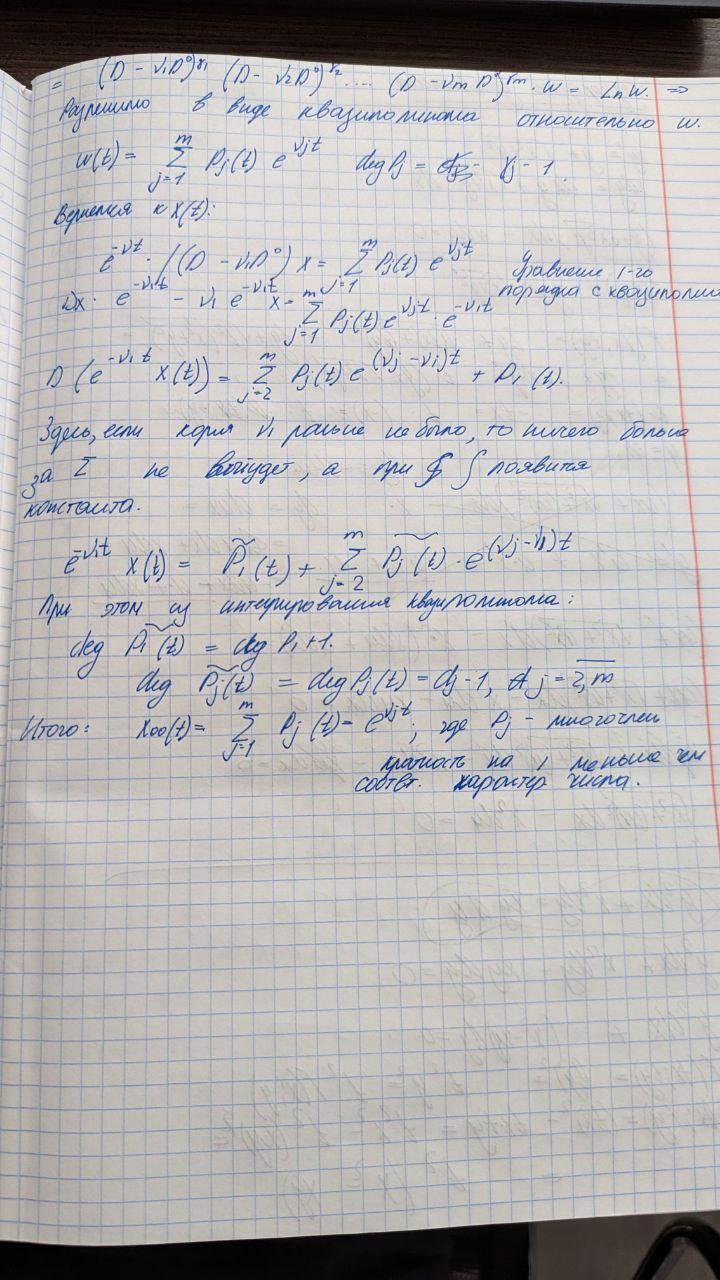 = (D - ν₁D⁰)^γ₁ (D - ν₂D⁰)^γ₂ .... (D - νmD⁰)^γm · w = Lnw. ⇒
Разрешимо в виде квазиполинома относительно w.
w(t) = Σ_{j=1}^{m} Pj(t) e^{νjt} deg Pj = γj - 1.
Вернемся к x(t):
e^{-νt} · | (D - ν₁D⁰) x = Σ_{j=1}^{m} Pj(t) e^{νjt} Уравнение 1-го
Dx · e^{-ν₁t} - ν₁ e^{-ν₁t} x = Σ_{j=1}^{m} Pj(t) e^{νjt} · e^{-ν₁t} порядка с квазиполин
D (e^{-ν₁t} x(t)) = Σ_{j=2}^{m} Pj(t) e^{(νj - ν₁)t} + P₁(t).
Здесь, если корня ν₁ раньше не было, то ничего больше
за Σ не выйдет, а при ∫ появится
константа.
e^{-ν₁t} x(t) = P̃₁(t) + Σ_{j=2}^{m} P̃j(t) · e^{(νj - ν₁)t}
При этом из интегрирования квазиполинома:
deg P̃₁(t) = deg P₁ + 1.
deg P̃j(t) = deg Pj(t) = αj - 1, j = 2,m
Итого: xоо(t) = Σ_{j=1}^{m} Pj(t) = e^{νjt}, где Pj - многочлен
кратность на 1 меньше чем
соотвт. характер числа.